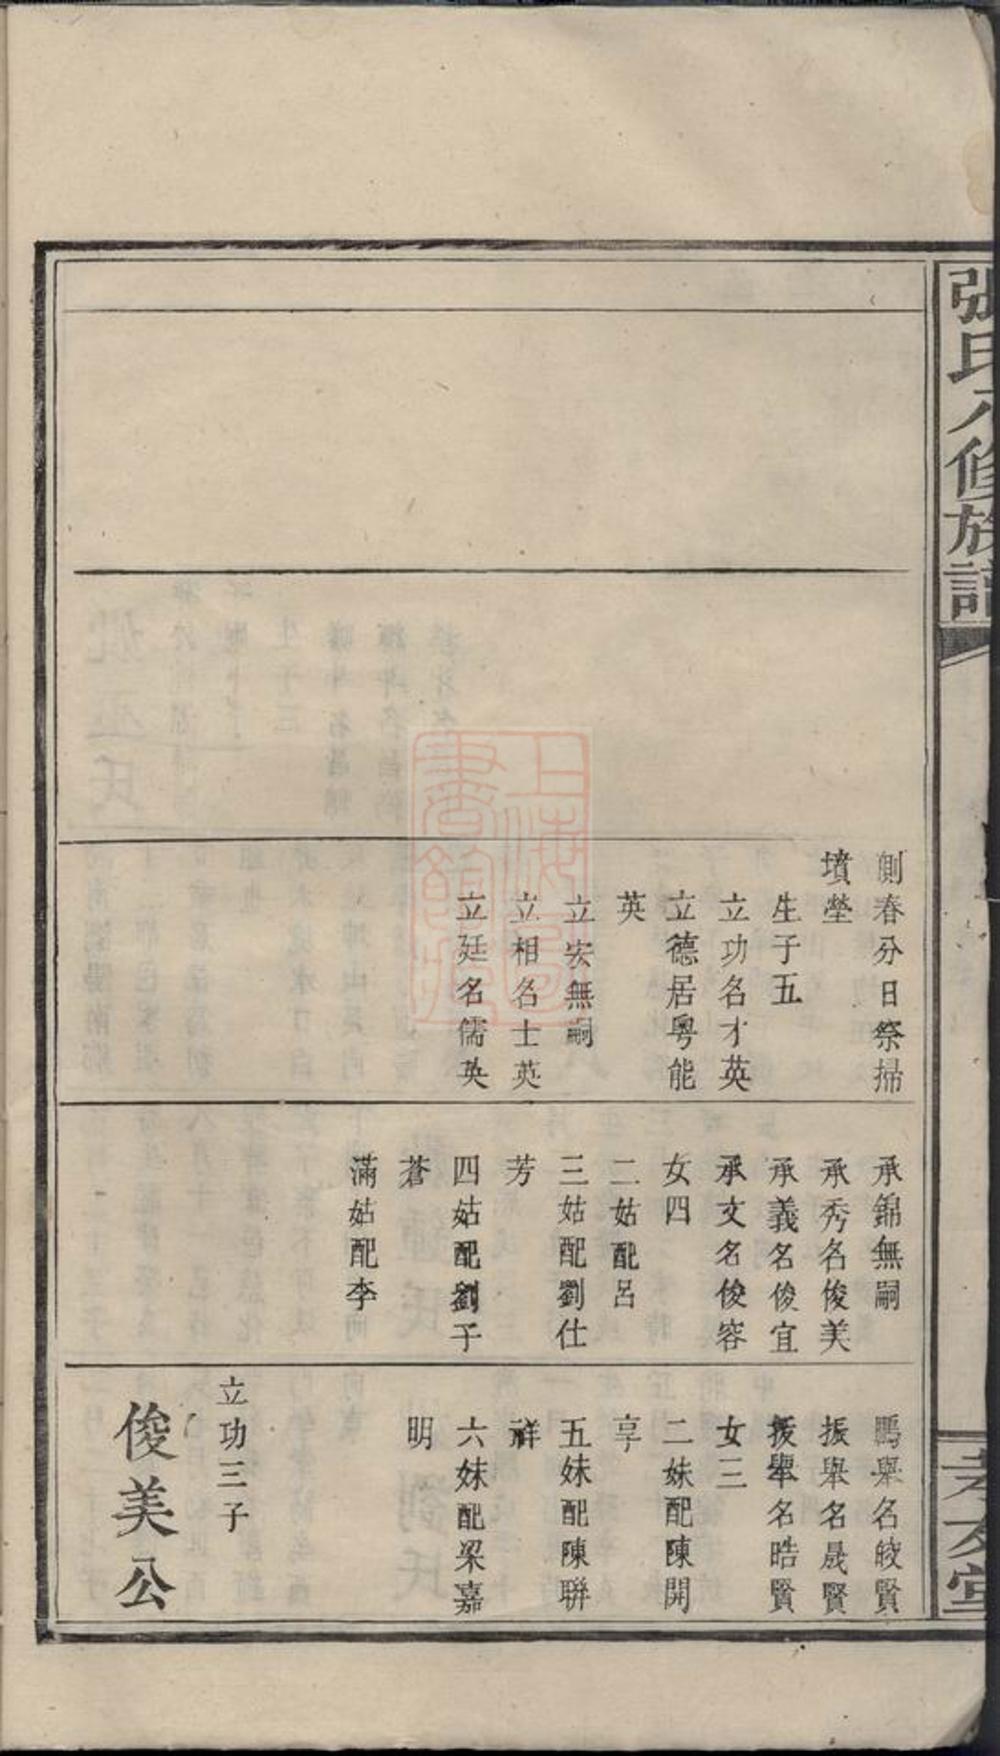 張氏八修族譜
側春分日祭掃
墳塋
生子五
立功名才英
立德居粵能
英
立安無嗣
立相名士英
立廷名儒英
承錦無嗣
承秀名俊美
承義名俊宜
承文名俊容
女四
二姑配呂
三姑配劉仕
芳
四姑配劉子
蒼
滿姑配李
鵬舉名皎賢
振舉名晟賢
拔舉名晧賢
女三
二妹配陳開
享
五妹配陳聯
祥
六妹配梁嘉
明
立功三子
俊美公
孝友堂
上海圖書館藏